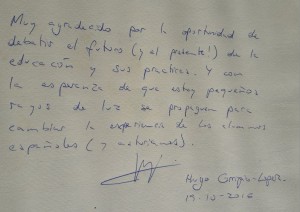 Muy agradecido por la oportunidad de
debatir el futuro (y el presente!) de la
educación y sus practicas. Y con
la esperanza de que estos pequeños
rayos de luz se propaguen para
cambiar la experiencia de los alumnos
españoles (y asturianos).
Hugo
19-10-2016